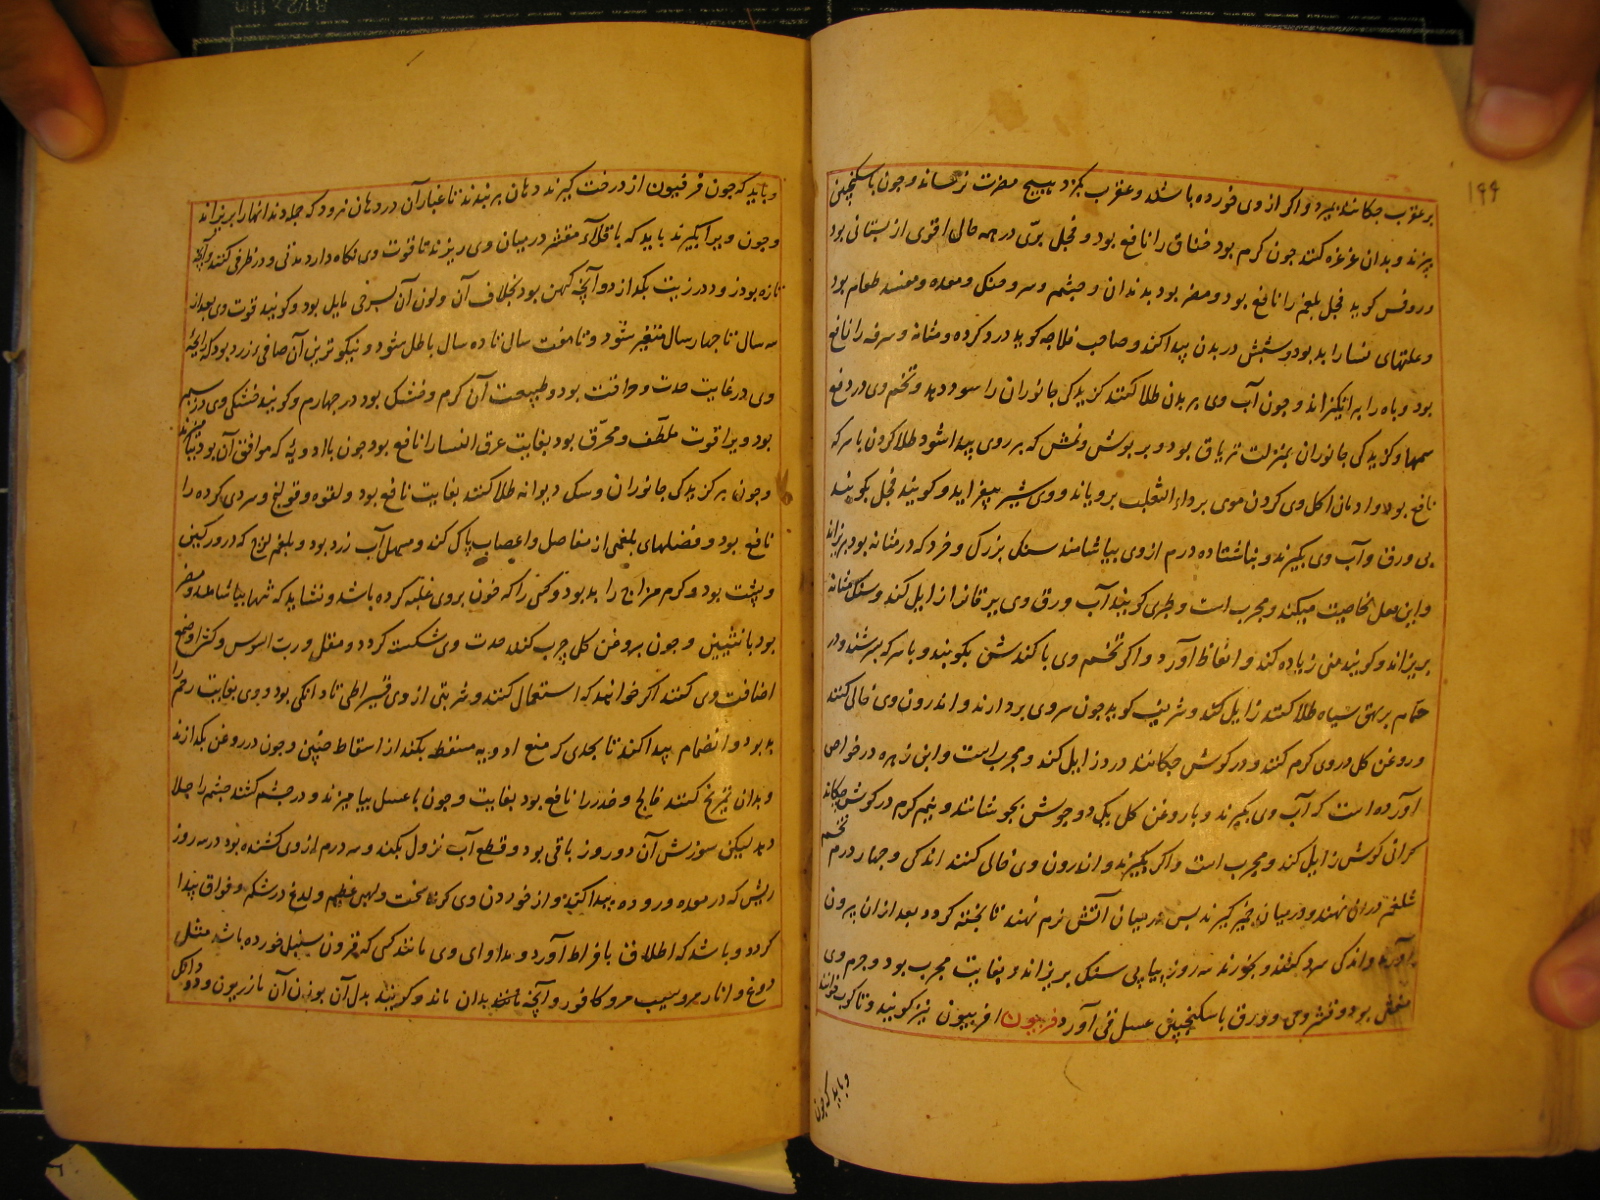 ۱۹۹
بر عقرب چکانند بمیرد و اکر از وی خورده باشند و عقرب بکزد هیچ مضرت نرساند و چون با سکنجبین
بپزند و بدان غرغره کنند چون کرم بود خناق را نافع بود و فجل برّی در همه حال اقوی از بستانی بود
و روفس کوید فجل بلغم را نافع بود و مضر بود بدندان و چشم و سر و حنک و معده و مفسد طعام بود
و علتهای نسا را بد بود و شپش در بدن پیدا کند و صاحب فلاحه کوید درد کرده و مثانه و سرفه را نافع
بود و باه را برانکیزاند و چون آب وی بر بدن طلا کنند کزیدکی جانوران را سود دهد و تخم وی در دفع
سمها و کزیدکی جانوران بمنزلت تریاق بود و بر بوش و نمش که بر روی پیدا شود طلا کردن با سرکه
نافع بود و ادمان اکل وی کردن موی بر داء الثعلب برویاند و وی شیر بیفزاید و کویند فجل بکوبند
بی ورق و آب وی بکیرند و بناشتا ده درم از وی بیاشامند سنک بزرک و خرد که در مثانه بود بریزاند
و این عمل بخاصیت میکند و مجرب است و طبری کوید آب ورق وی یرقان را زایل کند و سنک مثانه
بریزاند و کویند منی زیاده کند و انعاظ آورد و اکر تخم وی با کندش بکوبند و با سرکه بسرشند و در
حمام بر بهق سیاه طلا کنند زایل کند و شریف کوید چون سر وی بردارند و اندرون وی خالی کنند
و روغن کل در وی کرم کنند و در کوش چکانند درد زایل کند و مجرب است و ابن زهره در خواص
آورده است که آب وی بکیرند و با روغن کل یک دو جوش بجوشانند و نیم کرم در کوش چکانند
کرانی کوش زایل کند و مجرب است و اکر بکیرند و اندرون وی خالی کنند اندکی و چهار درم تخم
شلغم در آن نهند و در میان خمیر کیرند پس در میان آتش نرم نهند تا پخته کردد بعد از آن بیرون
آورند و اندکی سرد کنند و بخورند سه روز پیاپی سنک بریزاند و بغایت مجرب بود و جرم وی
مغثی بود و قشر وی و ورق با سکنجبین عسل قی آورد فربیون افربیون نیز کویند و تاکوب خوانند
و باید که چون
و باید که چون فرفیون از درخت کیرند دهان بربندند تا غبار آن در دهان نرود که جمله دندانها را بریزاند
و چون ویرا بکیرند باید که باقلاء مقشر در میان وی ریزند تا قوت وی نکاه دارد مدتی و در ظرفی کنند و آنچه
تازه بود زود در زیت بکدازد و آنچه کهن بود بخلاف آن و لون آن بسرخی مایل بود و کویند قوت وی بعد از
سه سال تا چهار سال متغیر شود و تا هفت سال تا ده سال باطل شود و نیکوترین آن صافی زرد بود که رایحهٔ
وی در غایت حدت و حرافت بود و طبیعت آن کرم و خشک بود در چهارم و کویند خشکی وی در سیم
بود و ویرا قوت ملطّف و محرّق بود بغایت عرق النسا را نافع بود چون با ادویهٔ که موافق آن بود بیامیزند
و چون بر کزیدکی جانوران و سک دیوانه طلا کنند بغایت نافع بود و لقوه و قولنج و سردی کرده را
نافع بود و فضلهای بلغمی از مفاصل و اعصاب پاک کند و مسهل آب زرد بود و بلغم لزج که در ورکین
و پشت بود و کرم مزاج را بد بود و کسی را که خون بر وی غلبه کرده باشد و نشاید که تنها بیاشامند و مضر
بود بانثیین و چون بروغن کل چرب کنند حدت وی شکسته کردد و مقل و رب السوس و کتیرا و صمغ
اضافت وی کنند اکر خواهند که استعمال کنند و شربتی از وی قیراطی تا دانکی بود و وی بغایت رحم را
بد بود و انضمام پیدا کند تا بحدی که منع ادویه مسقط بکند از اسقاط جنین و چون در روغن بکدازند
و بدان تمریخ کنند فالج و خدر را نافع بود بغایت و چون با عسل بیامیزند و در چشم کشند چشم را جلا
دهد لیکن سوزش آن دو روز باقی بود و قطع آب نزول بکند و سه درم از وی کشنده بود در سه روز
ریش که در معده و روده پیدا کند و از خوردن وی کرب سخت و لهیب عظیم و لدغ در شکم و فواق پیدا
کردد و باشد که اطلاق بافراط آورد و مداوای وی مانند کسی که قرون سنبل خورده باشد مثل
دوغ و انار مز و سیب مز و کافور و آنچه بدان ماند و کویند بدل آن بوزن آن مازریون و دو دانک